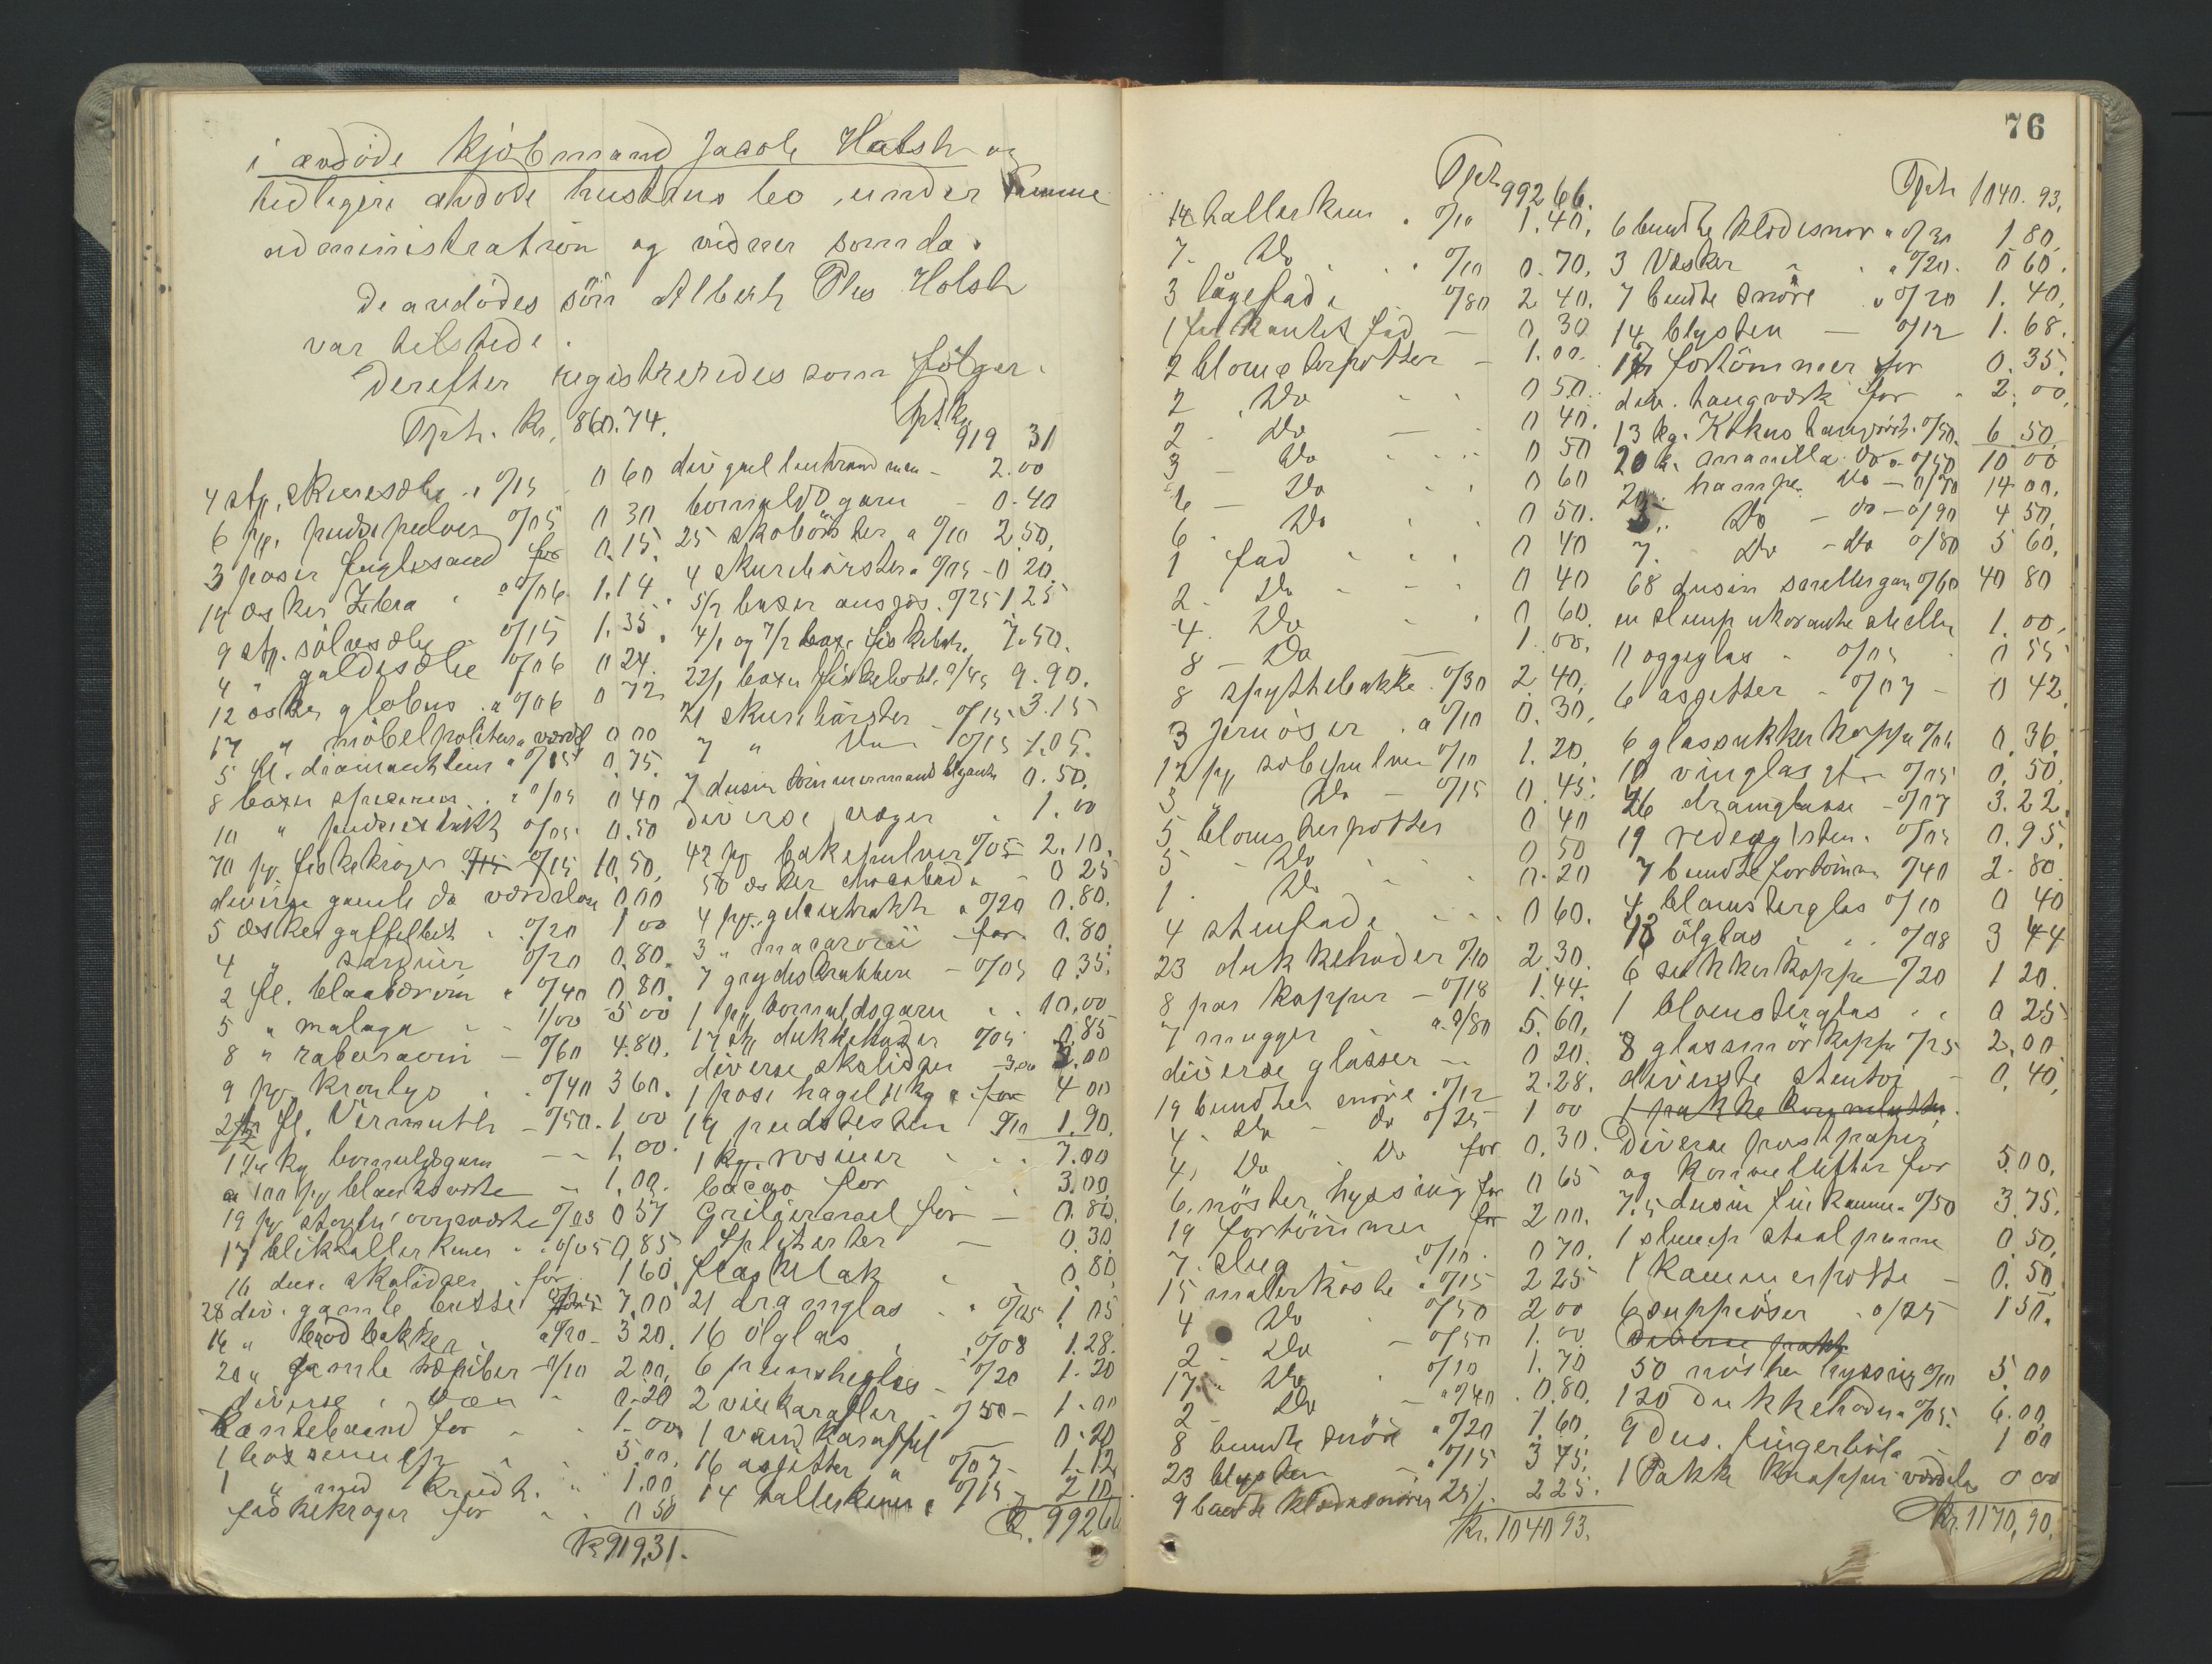 i avdöde Kjöbmand Jacob Holst og
tidligere avdöde hustrus bo, under samme
administration og vidner som da.
De avdödes sön Albert Ples Holst
var tilstede.
Derefter registreredes som fölger.
Tprt. Kr. 860.74.
4 stp. skuresæbe a 0/15 0 60
6 pp. pudsepulver 0/05 0 30
3 poser fuglesand for 0.15.
19 æsker Zebra a 0/06 1.14.
9 stp. sölvsæbe 0/15 1.35.
4 " guldsæbe 0/06 0 24.
12 æsker globus a 0/06 0 72
17 " möbelpolitur a værdl 0 00
5 fl. diamanttin a 0/15 0.75.
8 boxer 0/05 0 40
10 " pudseextrakt 0/05 0.50
70 pp. fiskekroger 0/15 0/15 10.50,
diverse gamle do værdilöse 0.00
5 æsker gaffelbit 0/20 1 00
4 " sardiner 0/20 0.80.
2 fl. blaabærvin a 0/40 0.80.
5 " malaga 1/00 5 00
8 " rabarbravin - 0/60 4.80.
9 pp. kronlys 0/40 3 60.
2/2 fl. Vermuth - 0/50. 1 00
kg bomuldsgarn - 1.00.
100 pp blanksværte 1.00.
19 pp. ovnsværte 0/03 0 57
17 bliktallerkener 0/05 0.85
16 dus. skolidser for 1 60.
28 div. gamle 0/25 7.00
16 " brödbakker a 0/20 - 3 20.
20 " gamle træpiber - 0/10 2 00.
diverse 0.20
Kantebaand for 1.00
1 5.00.
1 " med krudt. 1.00
fiskekroger for 0 50
Kr 919,31.
Tprt. Kr.
919 31
div 2.00
bomuldsgarn - 0.40
25 skobörster a 0/10 2.50.
4 skurebörster a 0/05 - 0 20.
5/2 boxer ansjos. 0/25 1.25
4/1 og 7/2 boxe fiskebol. 7.50.
22/1 boxer fiskeboll. 0/45 9.90.
21 skurebörster - 0/15 3.15
7 " Do 0/15 1.05.
7 dusin tömmermandsblyanter 0.50.
diverse væger 1.00
42 pp bakepulver 0/05 2.10.
50 æsker - 0 25
4 pp. geleextrakt a 0/20 0.80.
3 " macaroni for 0.80
7 grydeskrubbere - 0/05 0 35.
1 pp bomuldsgarn 10.00
17 stk dukkehoder 0/05 0.85
diverse skolidser 3.00
1 pose hagel 11 kg for 4 00
19 pudsesten 0/10 1.90.
1 kg. rosiner 7.00
cacao for 3.00
for - 0.80.
Spliterter - 0.30.
flasklak 0.80
21 dramglas 0/05 1 05
16 ölglas 0/08 1.28.
6 punsheglas - 0/20 1.20
2 vinkarafler - 0/50 - 1.00
1 vandkaraffel 0.20
16 asjetter a 0/07 - 1.12
14 tallerkener 0/15 - 2 10
Kr. 992 66
76
Tprt. 992 66.
14 tallerkener 0/10 1.40.
7 - Do 0/10 0.70.
3 lögefade 0/80 2 40.
1 firkantet fad - 0 30
2 blomsterpotter - 1.00.
2 Do 0 50.
2 - Do 0 40.
3 - Do 0 50
6 - Do 0 60
6. Do 0 50.
1 fad 0 40
2 - Do 0 40
4. Do 0 60.
8 - Do 1.00.
8 spyttebakke 0/30 2 40.
3 jernöser a 0/10 0.30.
12 pp sæbepulver 0/10 1.20.
3 " Do - 0/15 0.45.
5 blomsterpotter 0 40
5 - Do 0 50
1. Do 0.20
4 stenfade 0 60.
23 dukkehoder 0/10 2.30.
8 par kopper - 0/18 1.44.
7 mugger a 0/80 5.60.
diverse glasser - 0 20.
19 bundter snöre 0/12 2.28.
4. Do - do 0/25 1 00
4. Do Do for 0.30.
6 nöster hyssing for 0 65
19 fortömmer for 2 00.
7 slug 0/10. 0 70.
15 malerkoste 0/15 2 25
4 Do 0/50 2 00
2 - Do - 0/50 1.00
17 - Do 0/10 1.70
2 - Do - 0/40 0.80.
8 bundt snöre a 0/20 1.60.
23 blysten a 0/15 3 45.
9 bundte klædesnorer 25/. 2 25.
Kr. 1040 93.
Tprt 1040. 93.
6 bundte klædesnor a 0/30 1 80.
3 Væsker a 0/20. 0 60.
7 bundte snöre a 0/20 1. 40.
14 blysten - 0/12 1. 68.
fortömmer for 0. 35.
div. taugværk for 2. 00.
13 kg. Kokus taugværk. 0/50. 6 50.
20 k. manilla do a 0/50 10 00
20. hampe. do - 0/70 14 00.
5.. Do - do - 0/90 4 50.
7. Do - do 0/80 5 60.
68 dusin snellegarn 0/60 40 80
en slump ukurante sneller 1. 00.
11 eggeglas - 0/05 0 55
6 asjetter - 0/07 - 0 42.
6 glassukkerkopper 0/06 0. 36.
10 vinglas 0/05 0. 50.
46 dramglasse - 0/07 3. 22.
19 redeægsten. 0/05 0. 95.
7 bundte fortömmer 0/40 2. 80
4 blomsterglas 0/10 0 40
43 ölglas 0/08 3 44
6 sukkerkopper 0/20 1 20.
1 blomsterglas 0 25
8 glassmörkopper 0/25 2. 00
diverse stentöi - 0. 40.
1 pakke
Diverse postpapir
og konvolutter for 5.00.
7.5 dusin finkamme a 0/50 3.75.
1 slump staalpenne 0.50.
1 Kammerpotte - 0.50
6 suppeöser a 0/25 1 50.
Diverse prakt
50 nöster hyssing 0/10 5.00
120 Dukkehoder a 0/05. 6.00.
9 dus. fingerböl - 1 00
1 Pakke knapper værdilös 0 00
Kr. 1170, 90.